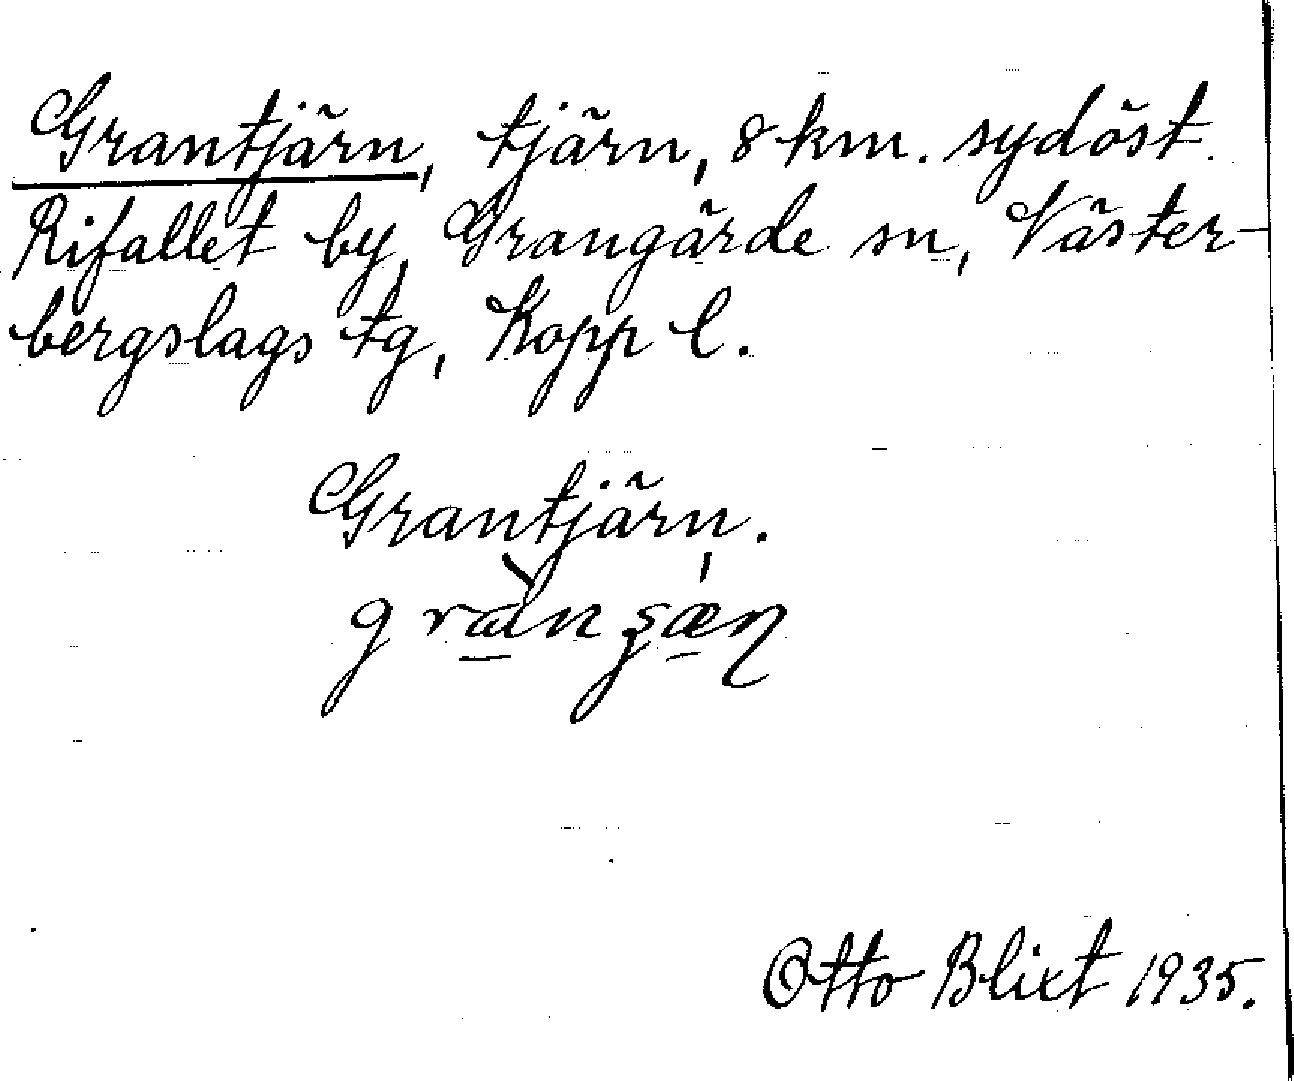 Grantjärn, tjärn, 8 km. sydöst
Rifallet by, Grangärde sn, Väster-
bergslags tg, Kopp l.
Grantjärn.
Otto Blixt 1935.